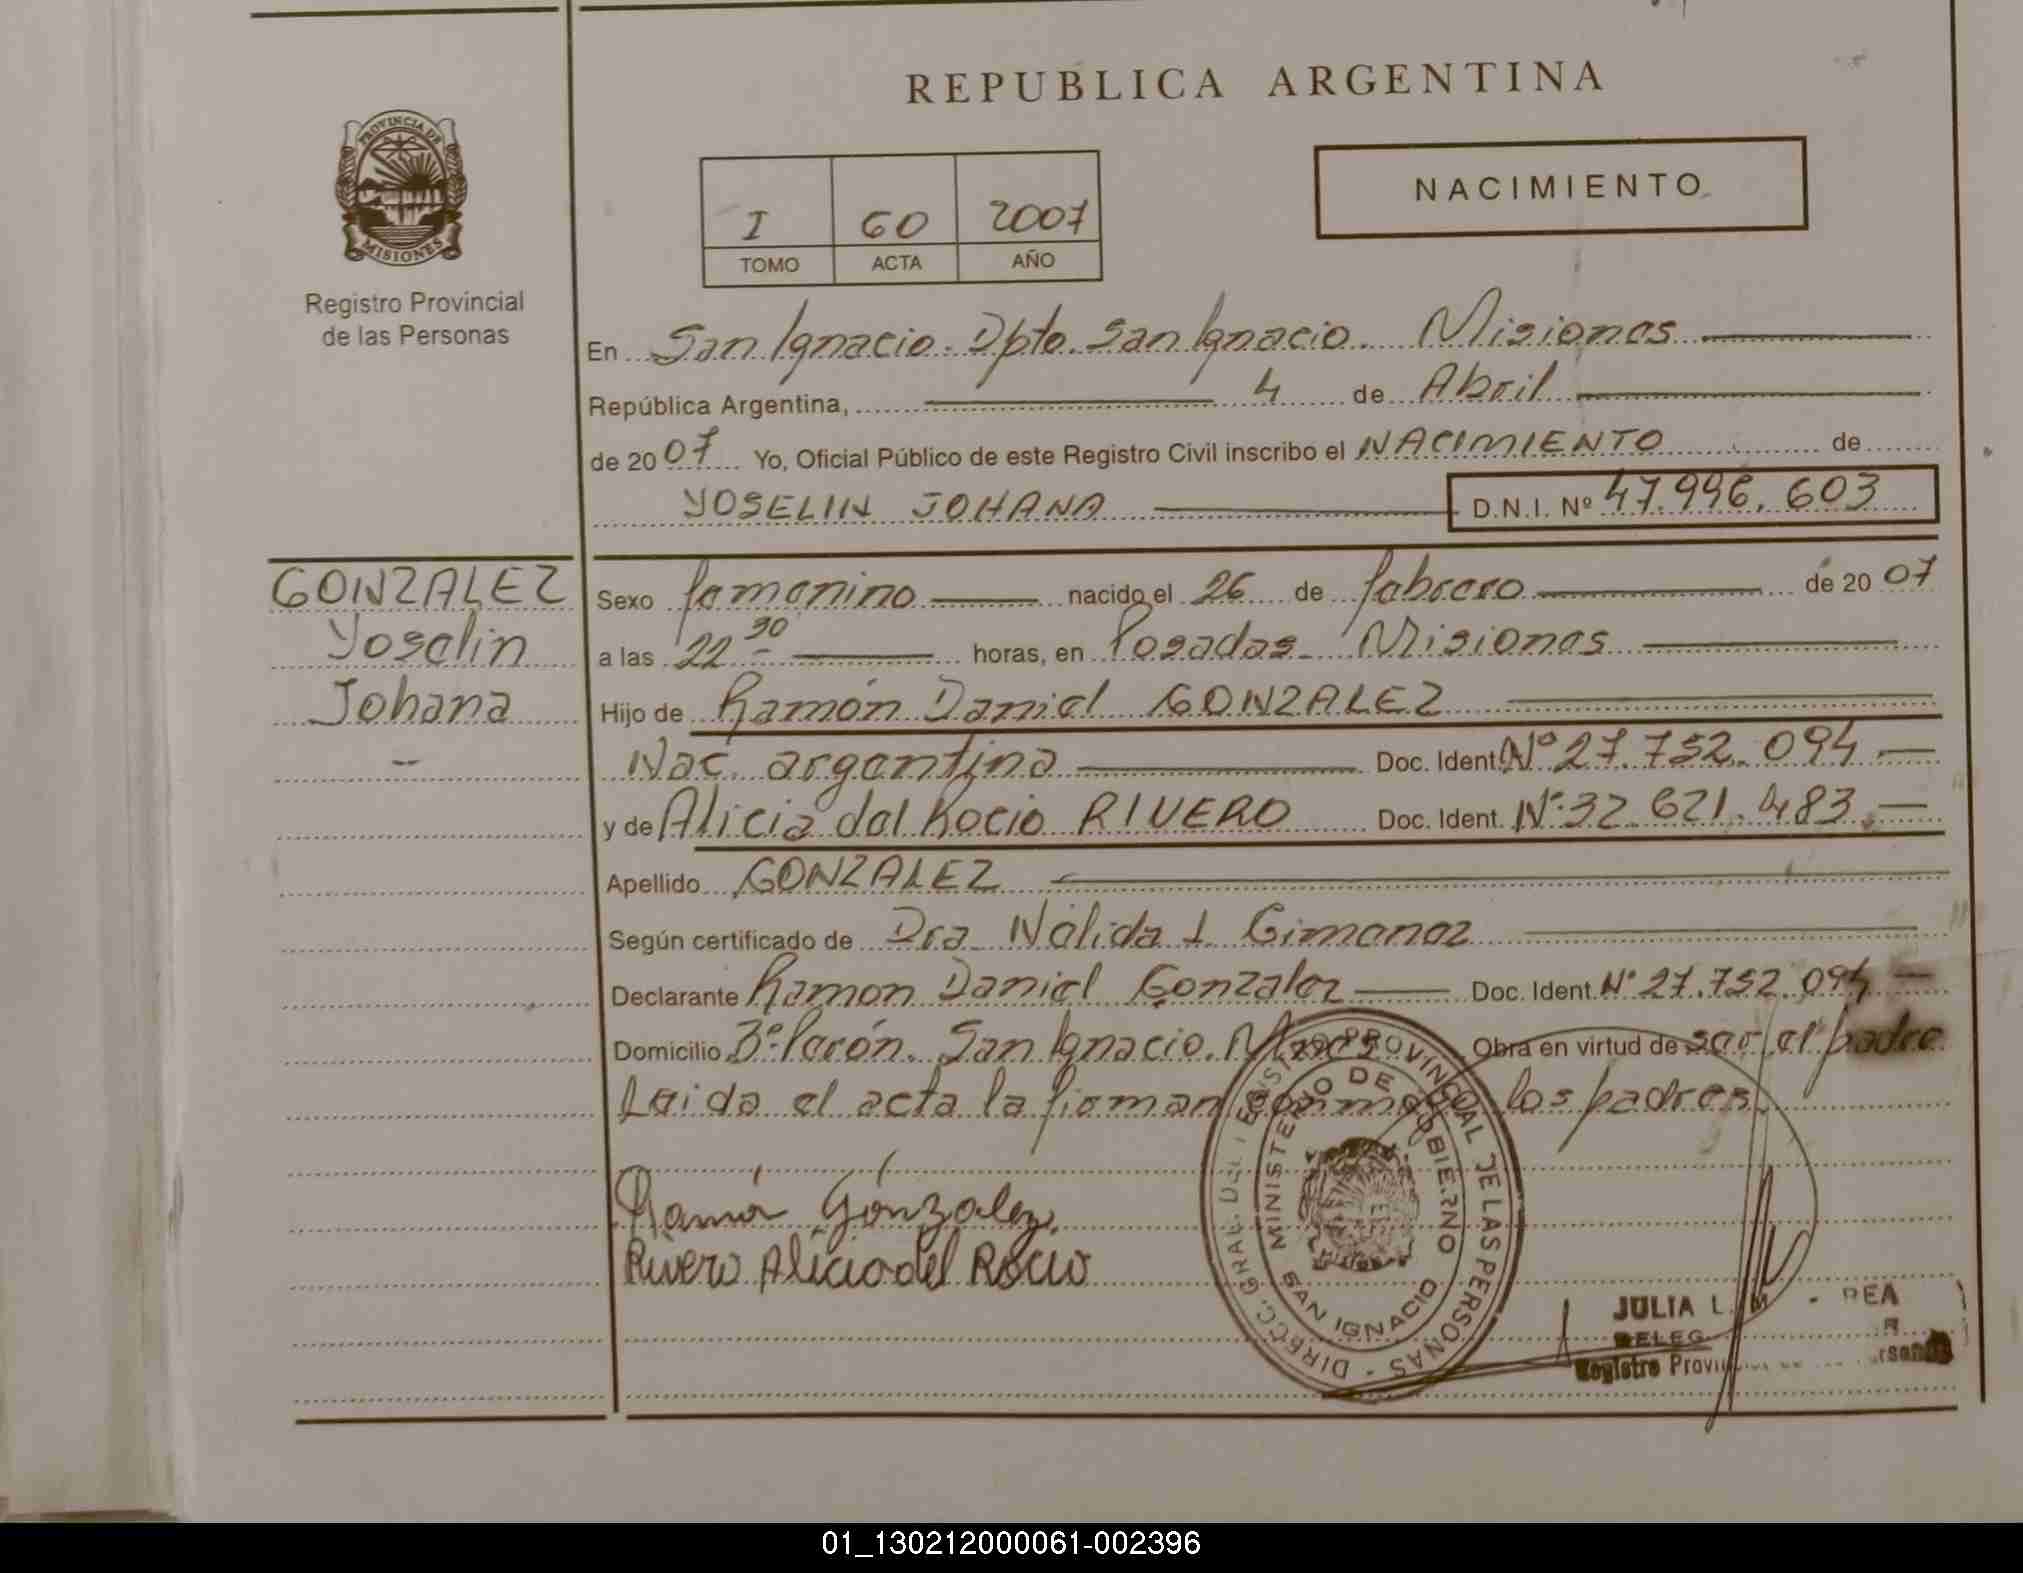 REPUBLICA ARGENTINA
PROVINCIA DE
MISIONES
Registro Provincial
de las Personas
I 60 2007
TOMO ACTA AÑO
NACIMIENTO
En San Ignacio. Dpto. San Ignacio. Misiones
República Argentina, 4 de Abril
de 2007 Yo, Oficial Público de este Registro Civil inscribo el NACIMIENTO de
YOSELIN JOHANA D.N.I. Nº 47.996.603
GONZALEZ
Yoselin
Johana
Sexo femenino nacido el 26 de febrero de 2007
a las 22 30 horas, en Posadas Misiones
Hijo de Ramón Daniel GONZALEZ
Nac. argentina Doc. Ident. Nº 27.752.094
y de Alicia del Rocio RIVERO Doc. Ident. Nº 32.621.483
Apellido GONZALEZ
Según certificado de Dra Nélida I Gimenez
Declarante Ramon Daniel Gonzalez Doc. Ident. Nº 27.752.094
Domicilio Bº Perón. San Ignacio. Mnes Obra en virtud de ser el padre
Leida el acta la firman conmigo los padres
Ramón Gonzalez
Rivero Alicia del Rocio
DIRECC. GRAL. DEL REGISTRO PROVINCIAL DE LAS PERSONAS
MINISTERIO DE GOBIERNO
SAN IGNACIO
JULIA L.
DELEG
Registro Provin
01_130212000061-002396